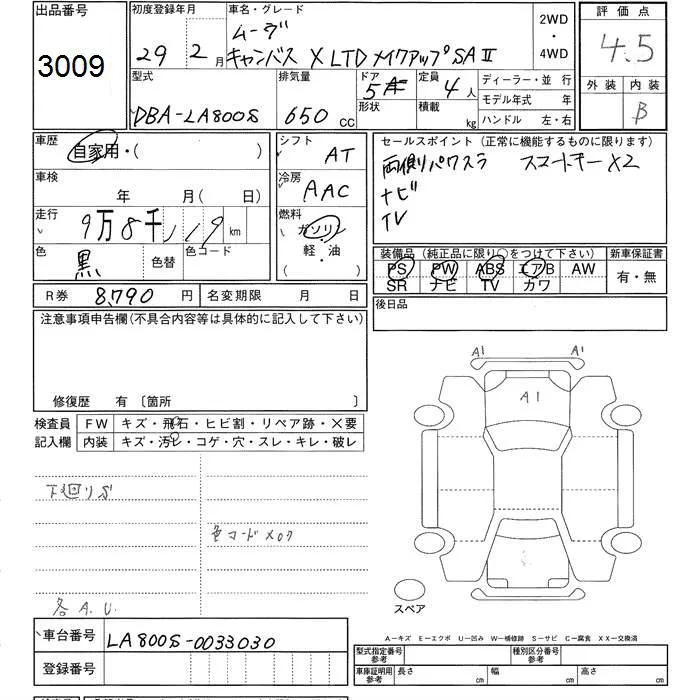 出品番号
3009
初度登録年月
29年2月
車名・グレード
ムーヴ
キャンバス X LTD メイクアップ SA Ⅱ
2WD
・
4WD
評価点
4.5
外装 内装
B
型式
DBA-LA800S
排気量
650 cc
ドア
形状
定員
4人
積載
kg
ディーラー・並 行
モデル年式 年
ハンドル 左・右
車歴
自家用・( )
シフト
AT
車検
年 月( 日)
冷房
AAC
走行
9万8千119 km
燃料
ガソリン
軽・油
( )
色
黒
色替
色コード
R券 8,790 円
名変期限 月 日
セールスポイント (正常に機能するものに限ります)
両側パワスラ スマートキー×2
ナビ
TV
装備品(純正品に限り○をつけて下さい)
PS PW ABS エアB AW
SR ナビ TV カワ
新車保証書
有・無
後日品
注意事項申告欄(不具合内容等は具体的に記入して下さい)
修復歴 有 〔箇所 〕
検査員
記入欄
FW キズ・飛石・ヒビ割・リペア跡・×要
内装 キズ・汚レ・コゲ・穴・スレ・キレ・破レ
A1 A1
A1
下廻りS
色コードX07
各A.U.
スペア
車台番号 LA800S-0033030
登録番号
A-キズ E-エクボ U-凹み W-補修跡 S-サビ C-腐食 XX-交換済
型式指定番号
参考
種別区分番号
参考
車庫証明用
参考
長さ cm 幅 cm 高さ cm